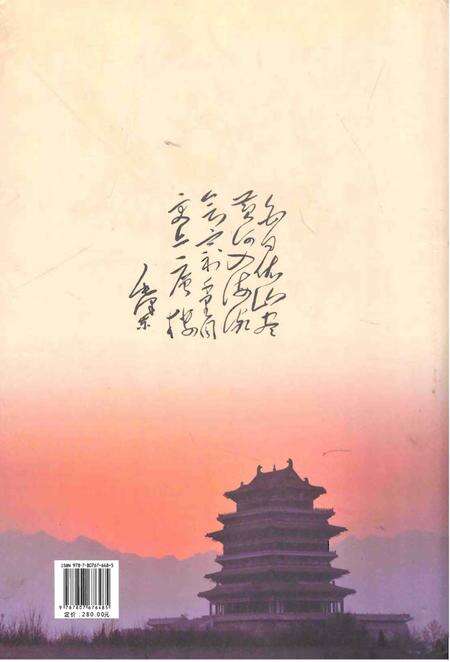 白日依山尽
黄河入海流
欲穷千里目
更上一层楼
毛泽东
ISBN 978-7-80767-648-5
9 787807 676485
定价:280.00元